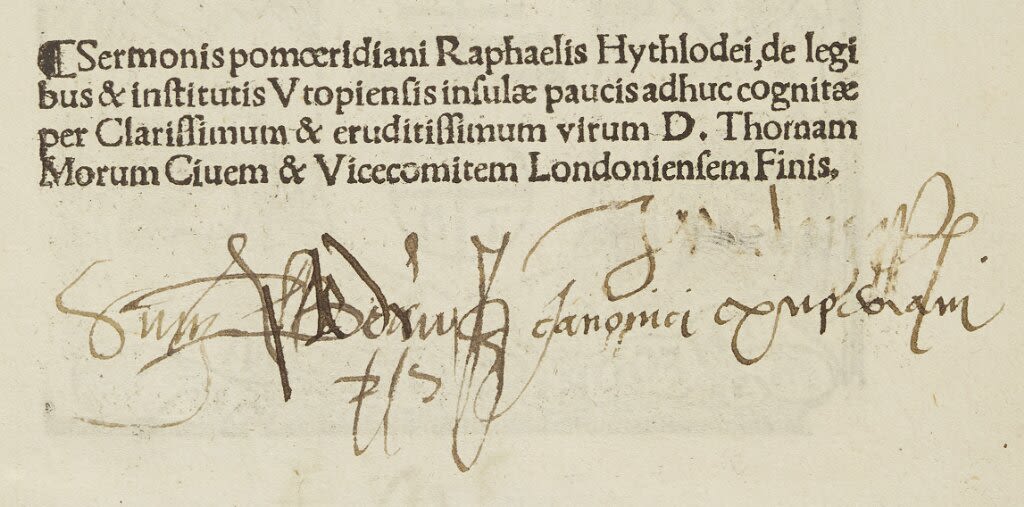 ¶Sermonis pomœridiani Raphaelis Hythlodei, de legi
bus & institutis Vtopiensis insulæ paucis adhuc cognitæ
per Clarissimum & eruditissimum virum D. Thomam
Morum Ciuem & Vicecomitem Londoniensem Finis.
Sum canonici